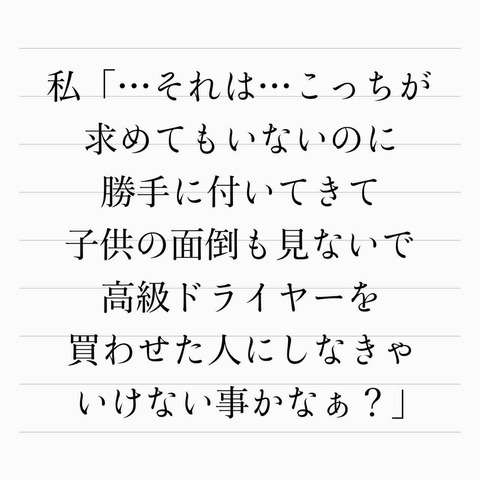 私「…それは…こっちが
求めてもいないのに
勝手に付いてきて
子供の面倒も見ないで
高級ドライヤーを
買わせた人にしなきゃ
いけない事かなぁ？」